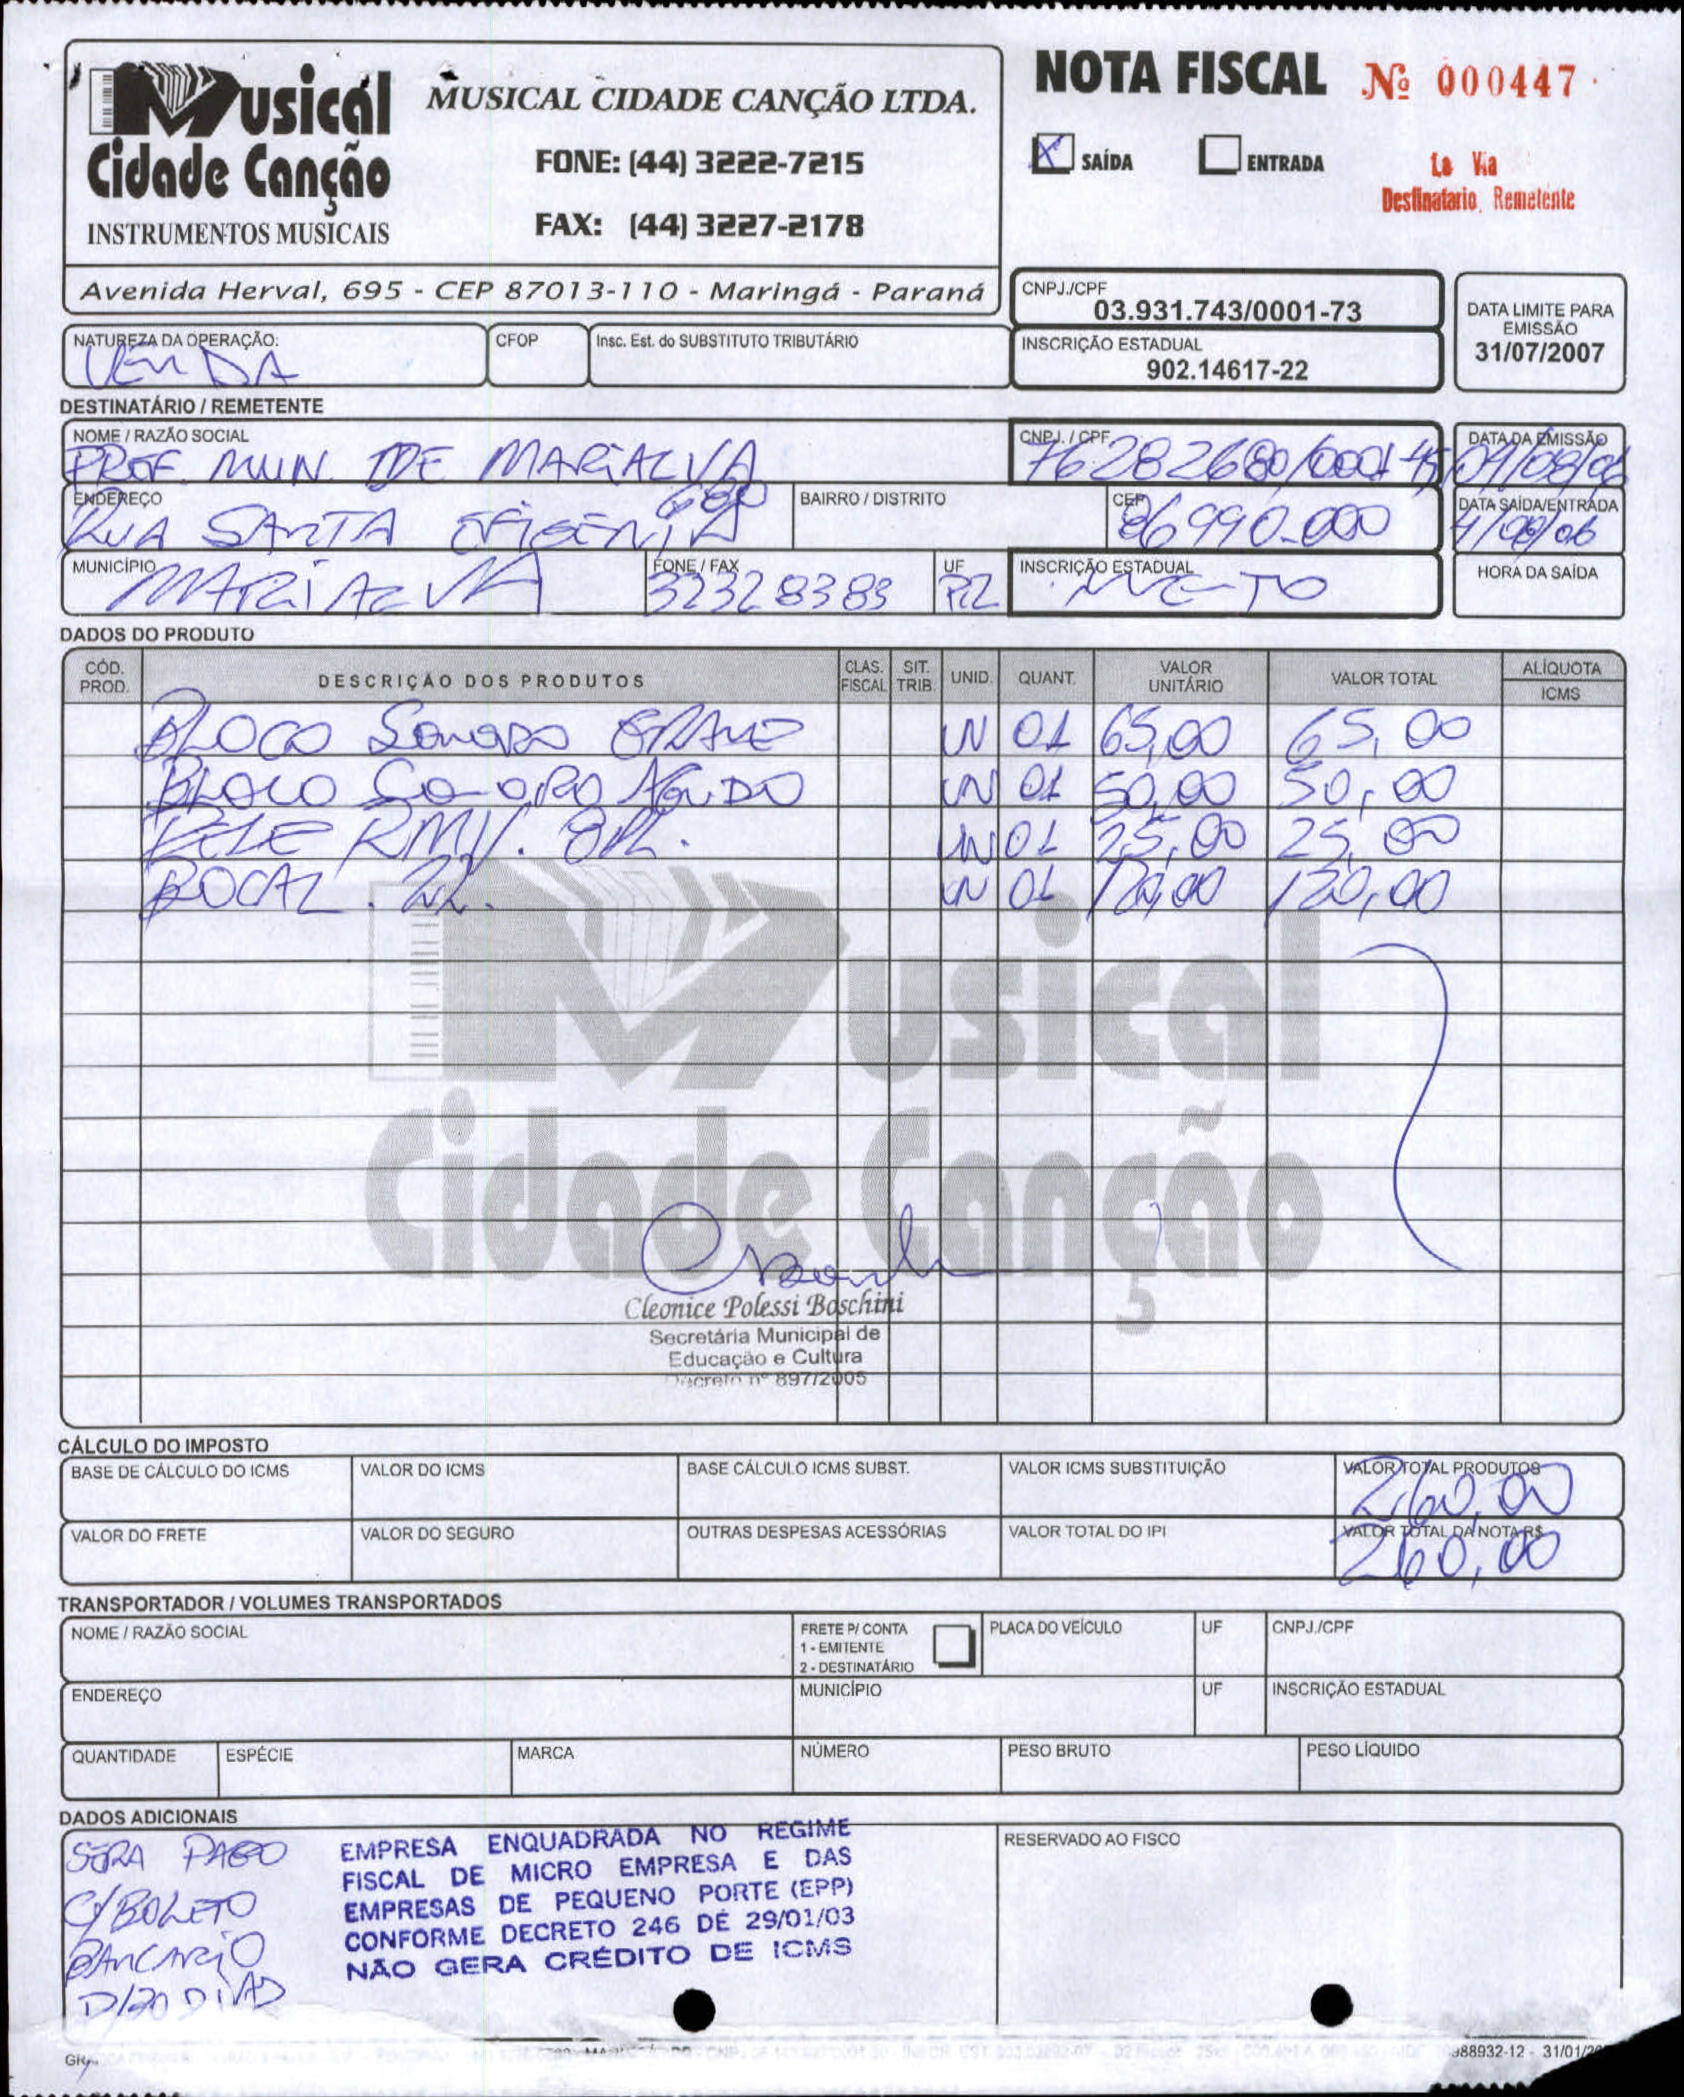 Musical
Cidade Canção
INSTRUMENTOS MUSICAIS
MUSICAL CIDADE CANÇÃO LTDA.
FONE: (44) 3222-7215
FAX: (44) 3227-2178
Avenida Herval, 695 - CEP 87013-110 - Maringá - Paraná
NOTA FISCAL Nº 000447
X SAÍDA ENTRADA
1a Via
Destinatario Remetente
CNPJ./CPF
03.931.743/0001-73
INSCRIÇÃO ESTADUAL
902.14617-22
DATA LIMITE PARA
EMISSÃO
31/07/2007
NATUREZA DA OPERAÇÃO: CFOP Insc. Est. do SUBSTITUTO TRIBUTÁRIO
VENDA
DESTINATÁRIO / REMETENTE
NOME / RAZÃO SOCIAL CNPJ. / CPF DATA DA EMISSÃO
PREF. MUN. DE MARIALVA 76282680/0001-45
ENDEREÇO BAIRRO / DISTRITO CEP DATA SAÍDA/ENTRADA
RUA SANTA EFIGENIA 680 86990-000
MUNICÍPIO FONE / FAX UF INSCRIÇÃO ESTADUAL HORA DA SAÍDA
MARIALVA 32328383 PR
DADOS DO PRODUTO
CÓD. PROD. DESCRIÇÃO DOS PRODUTOS CLAS. FISCAL SIT. TRIB. UNID. QUANT. VALOR UNITÁRIO VALOR TOTAL ALÍQUOTA ICMS
BLOCO SONORO GRAVE UN 01 65,00 65,00
BLOCO SONORO AGUDO UN 01 50,00 50,00
PELE RMV. UN 01 25,00 25,00
BOCAL UN 01 120,00 120,00
Musical
Cidade Canção
Cleonice Polessi Boschini
Secretária Municipal de
Educação e Cultura
Decreto nº 897/2005
CÁLCULO DO IMPOSTO
BASE DE CÁLCULO DO ICMS VALOR DO ICMS BASE CÁLCULO ICMS SUBST. VALOR ICMS SUBSTITUIÇÃO VALOR TOTAL PRODUTOS
260,00
VALOR DO FRETE VALOR DO SEGURO OUTRAS DESPESAS ACESSÓRIAS VALOR TOTAL DO IPI VALOR TOTAL DA NOTA R$
260,00
TRANSPORTADOR / VOLUMES TRANSPORTADOS
NOME / RAZÃO SOCIAL FRETE P/ CONTA PLACA DO VEÍCULO UF CNPJ./CPF
1 - EMITENTE
2 - DESTINATÁRIO
ENDEREÇO MUNICÍPIO UF INSCRIÇÃO ESTADUAL
QUANTIDADE ESPÉCIE MARCA NÚMERO PESO BRUTO PESO LÍQUIDO
DADOS ADICIONAIS
SERA PAGO
C/BOLETO
BANCARIO
RESERVADO AO FISCO
EMPRESA ENQUADRADA NO REGIME
FISCAL DE MICRO EMPRESA E DAS
EMPRESAS DE PEQUENO PORTE (EPP)
CONFORME DECRETO 246 DE 29/01/03
NÃO GERA CRÉDITO DE ICMS